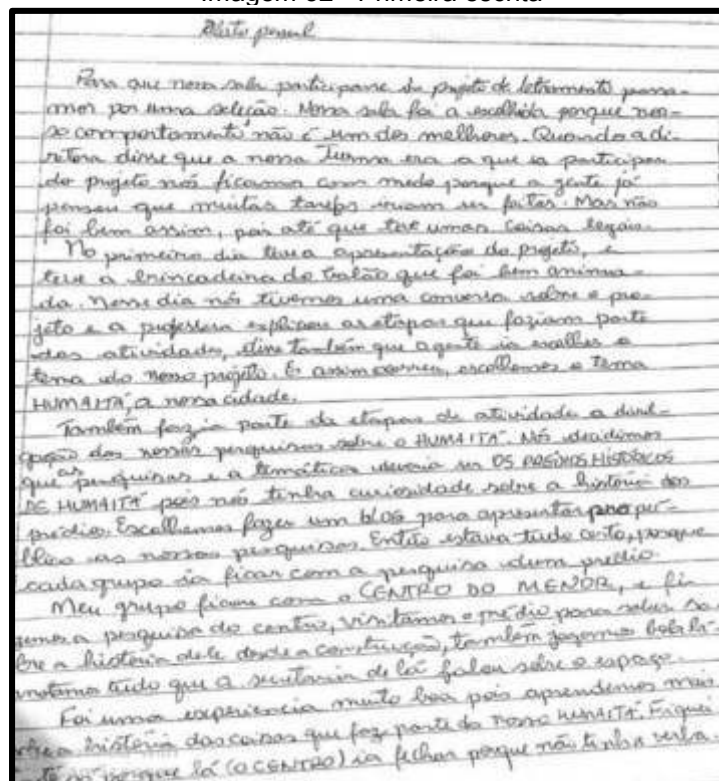 Imagem 32 - Primeira escrita
Relato pessoal
Para que nossa sala participasse do projeto de letramento passa-
mos por uma seleção. Nossa sala foi a escolhida porque nos-
so comportamento não é um dos melhores. Quando a di-
retora disse que a nossa Turma era a que ia participar
do projeto nós ficamos com medo, porque a gente já
pensou que muitas tarefas iriam ser feitas. Mas não
foi bem assim, pois até que teve umas coisas legais.
No primeiro dia teve a apresentação do projeto, e
teve a brincadeira do balão que foi bem anima-
da. Nesse dia nós tivemos uma conversa sobre o pro-
jeto e a professora explicou as etapas que faziam parte
das atividades, disse também que a gente ia escolher o
tema do nosso projeto. E assim ocorreu, escolhemos o tema
HUMAITÁ, a nossa cidade.
Também fazia parte da etapas de atividade a divul-
gação das nossas pesquisas sobre o HUMAITÁ. Nós decidimos
que as pesquisas e a temáticas deveria ser OS PRÉDIOS HISTÓRICOS
DE HUMAITÁ pois nós tinha curiosidade sobre a história dos
prédio. Escolhemos fazer um blog para apresentar pro pú-
blico as nossas pesquisas. Então estava tudo certo, porque
cada grupo ia ficar com a pesquisa dum prédio.
Meu grupo ficou com o CENTRO DO MENOR, e fi
zemos a pesquisa do centro, visitamos o prédio para saber so
bre a história dele desde a construção, também jogamos bola lá.
anotamos tudo que a secretaria de lá falou sobre o espaço.
Foi uma experiencia muito boa pois aprendemos mais
sobre a história das coisas que faz parte do nosso HUMAITÁ. Fiquei
porque lá (O CENTRO) ia fechar porque não tinha verba.